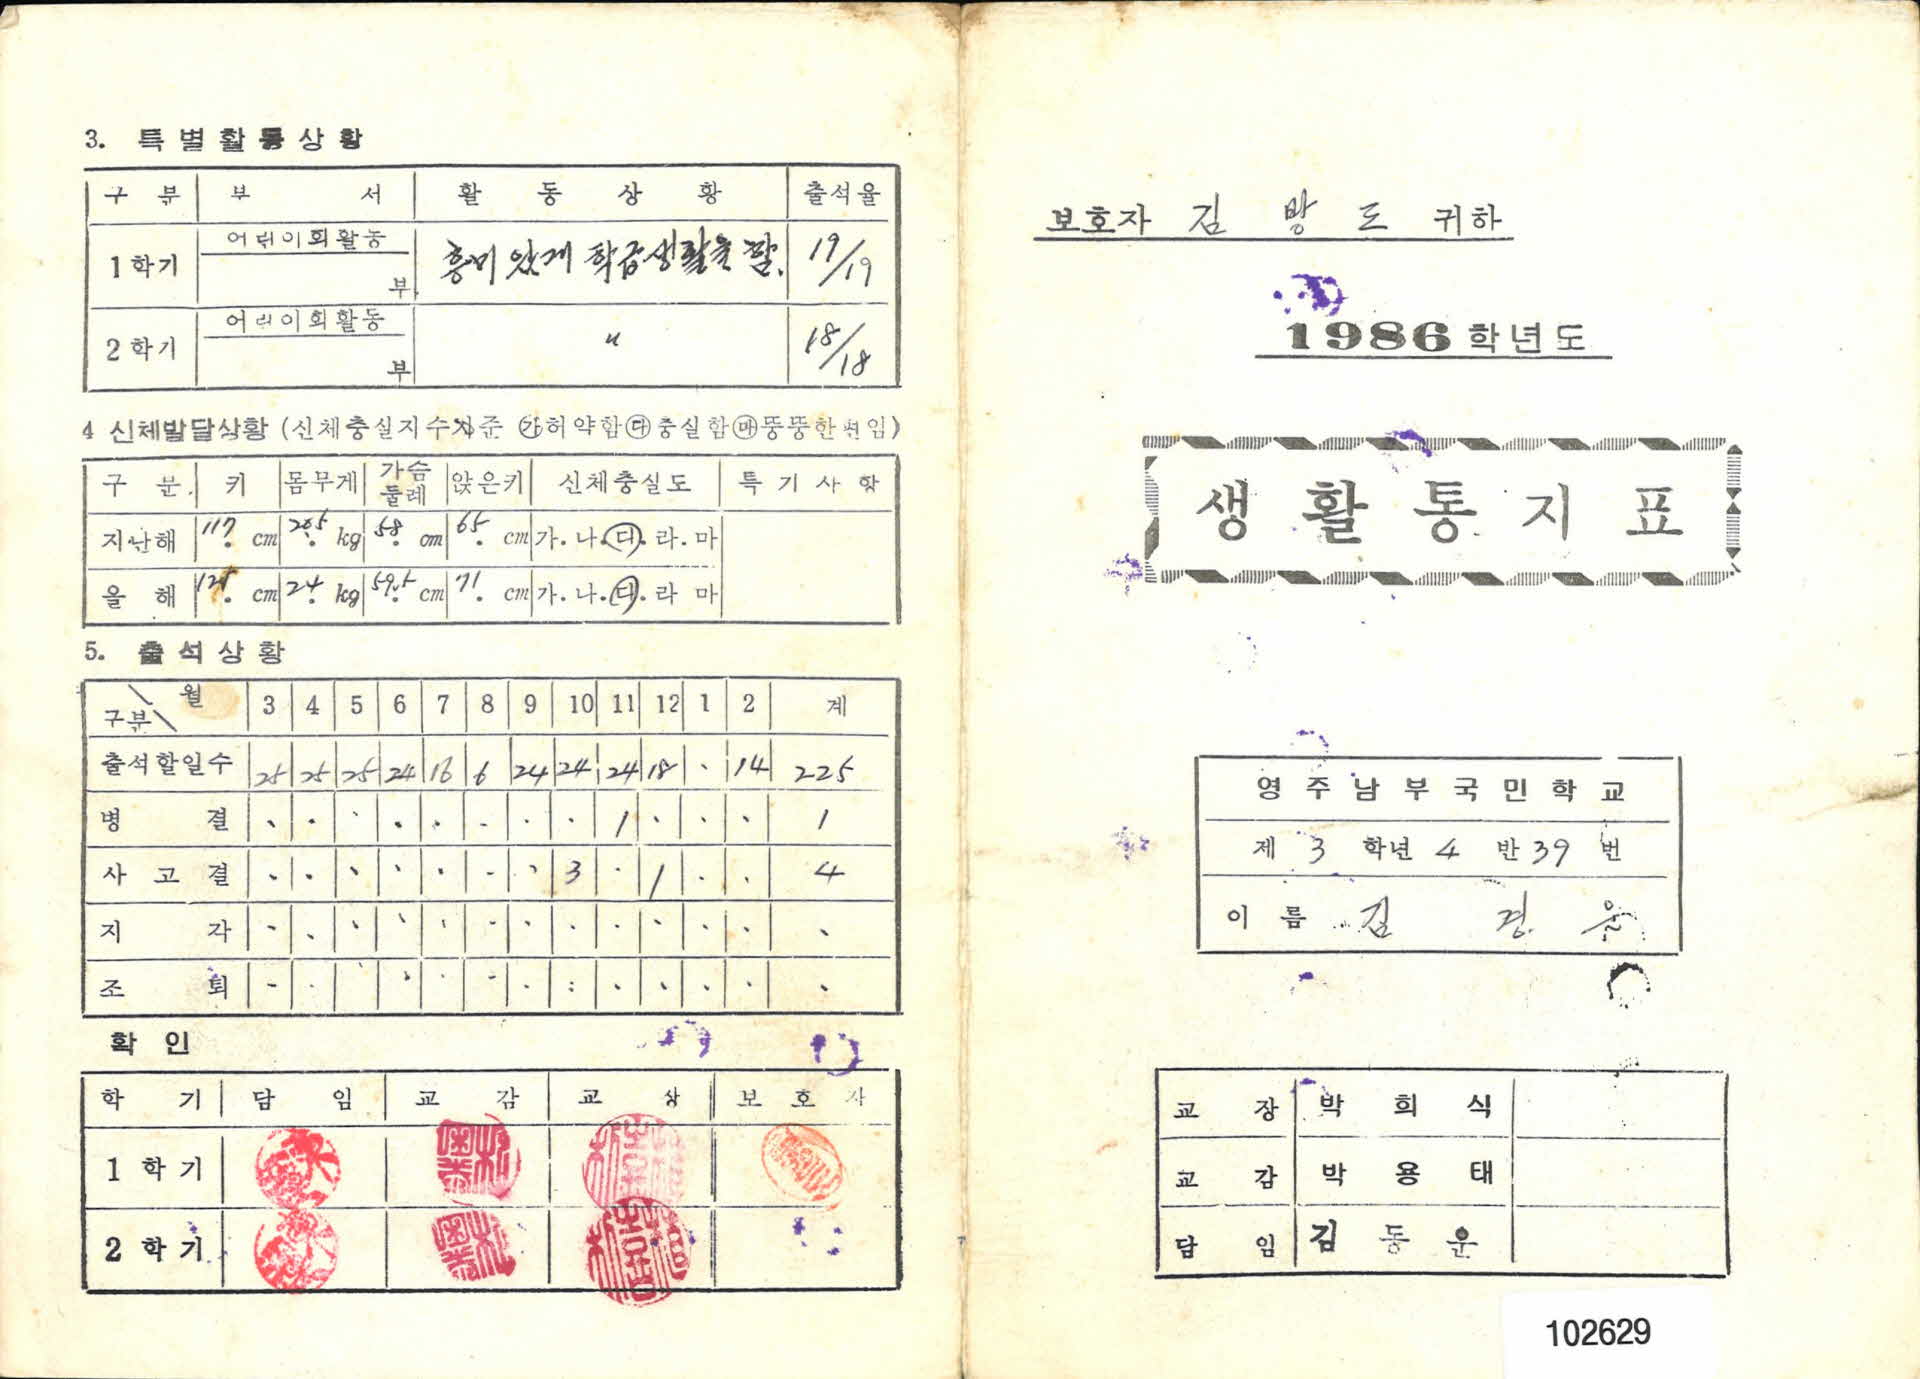 3. 특별활동상황
구 분 부 서 활 동 상 황 출석율
1학기 어린이회활동 부 흥미있게 학급생활을 함. 19/19
2학기 어린이회활동 부 〃 18/18
4 신체발달상황 (신체충실지수기준 ㉮허약함 ㉰충실함 ㉲뚱뚱한편임)
구 분 키 몸무게 가슴둘레 앉은키 신체충실도 특 기 사 항
지난해 117. cm 20.5 kg 58. cm 65. cm 가.나.다.라.마
올 해 cm 24. kg 59.5 cm 71. cm 가.나.다.라 마
5. 출석상황
구분 월 3 4 5 6 7 8 9 10 11 12 1 2 계
출석할일수 25 25 25 24 16 6 24 24 24 18 . 14 225
병 결 . . . . . . . . 1 . . . 1
사 고 결 . . . . . . . 3 . 1 . . 4
지 각 . . . . . . . . . . . . .
조 퇴 . . . . . . . . . . . .
확 인
학 기 담 임 교 감 교 장 보 호 자
1 학 기
2 학 기
보호자 김 방 도 귀하
1986학년도
생 활 통 지 표
영 주 남 부 국 민 학 교
제 3 학년 4 반 39 번
이 름 김 경
교 장 박 희 식
교 감 박 용 태
담 임 김 동 운
102629